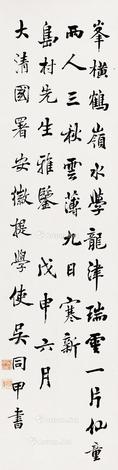 峯橫鶴嶺水學龍津瑞雲一片仙童
兩人三秋雲薄九日寒新
島村先生雅鑒 戊申六月
大清國署安徽提學使吳同甲書